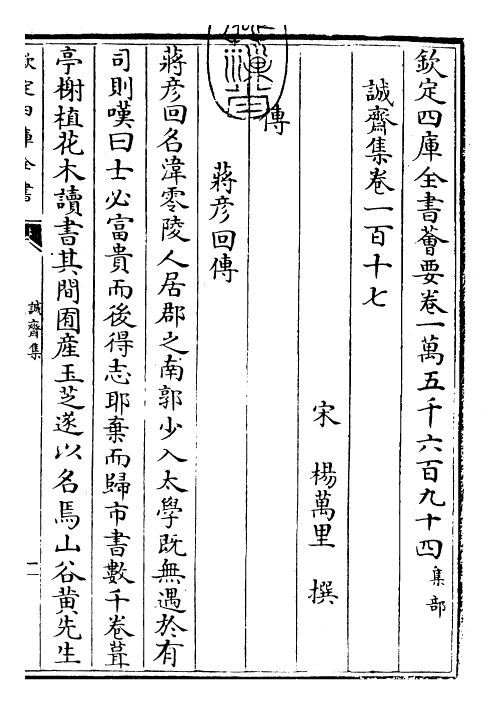 欽定四庫全書薈要卷一萬五千六百九十四集部
誠齋集卷一百十七
宋 楊萬里 撰
傳
蔣彥回傳
蔣彥回名湋零陵人居郡之南郭少入太學既無遇於有
司則嘆曰士必富貴而後得志耶棄而歸市書數千卷葺
亭榭植花木讀書其間囿產玉芝遂以名焉山谷黃先生
欽定四庫全書
誠齋集
二